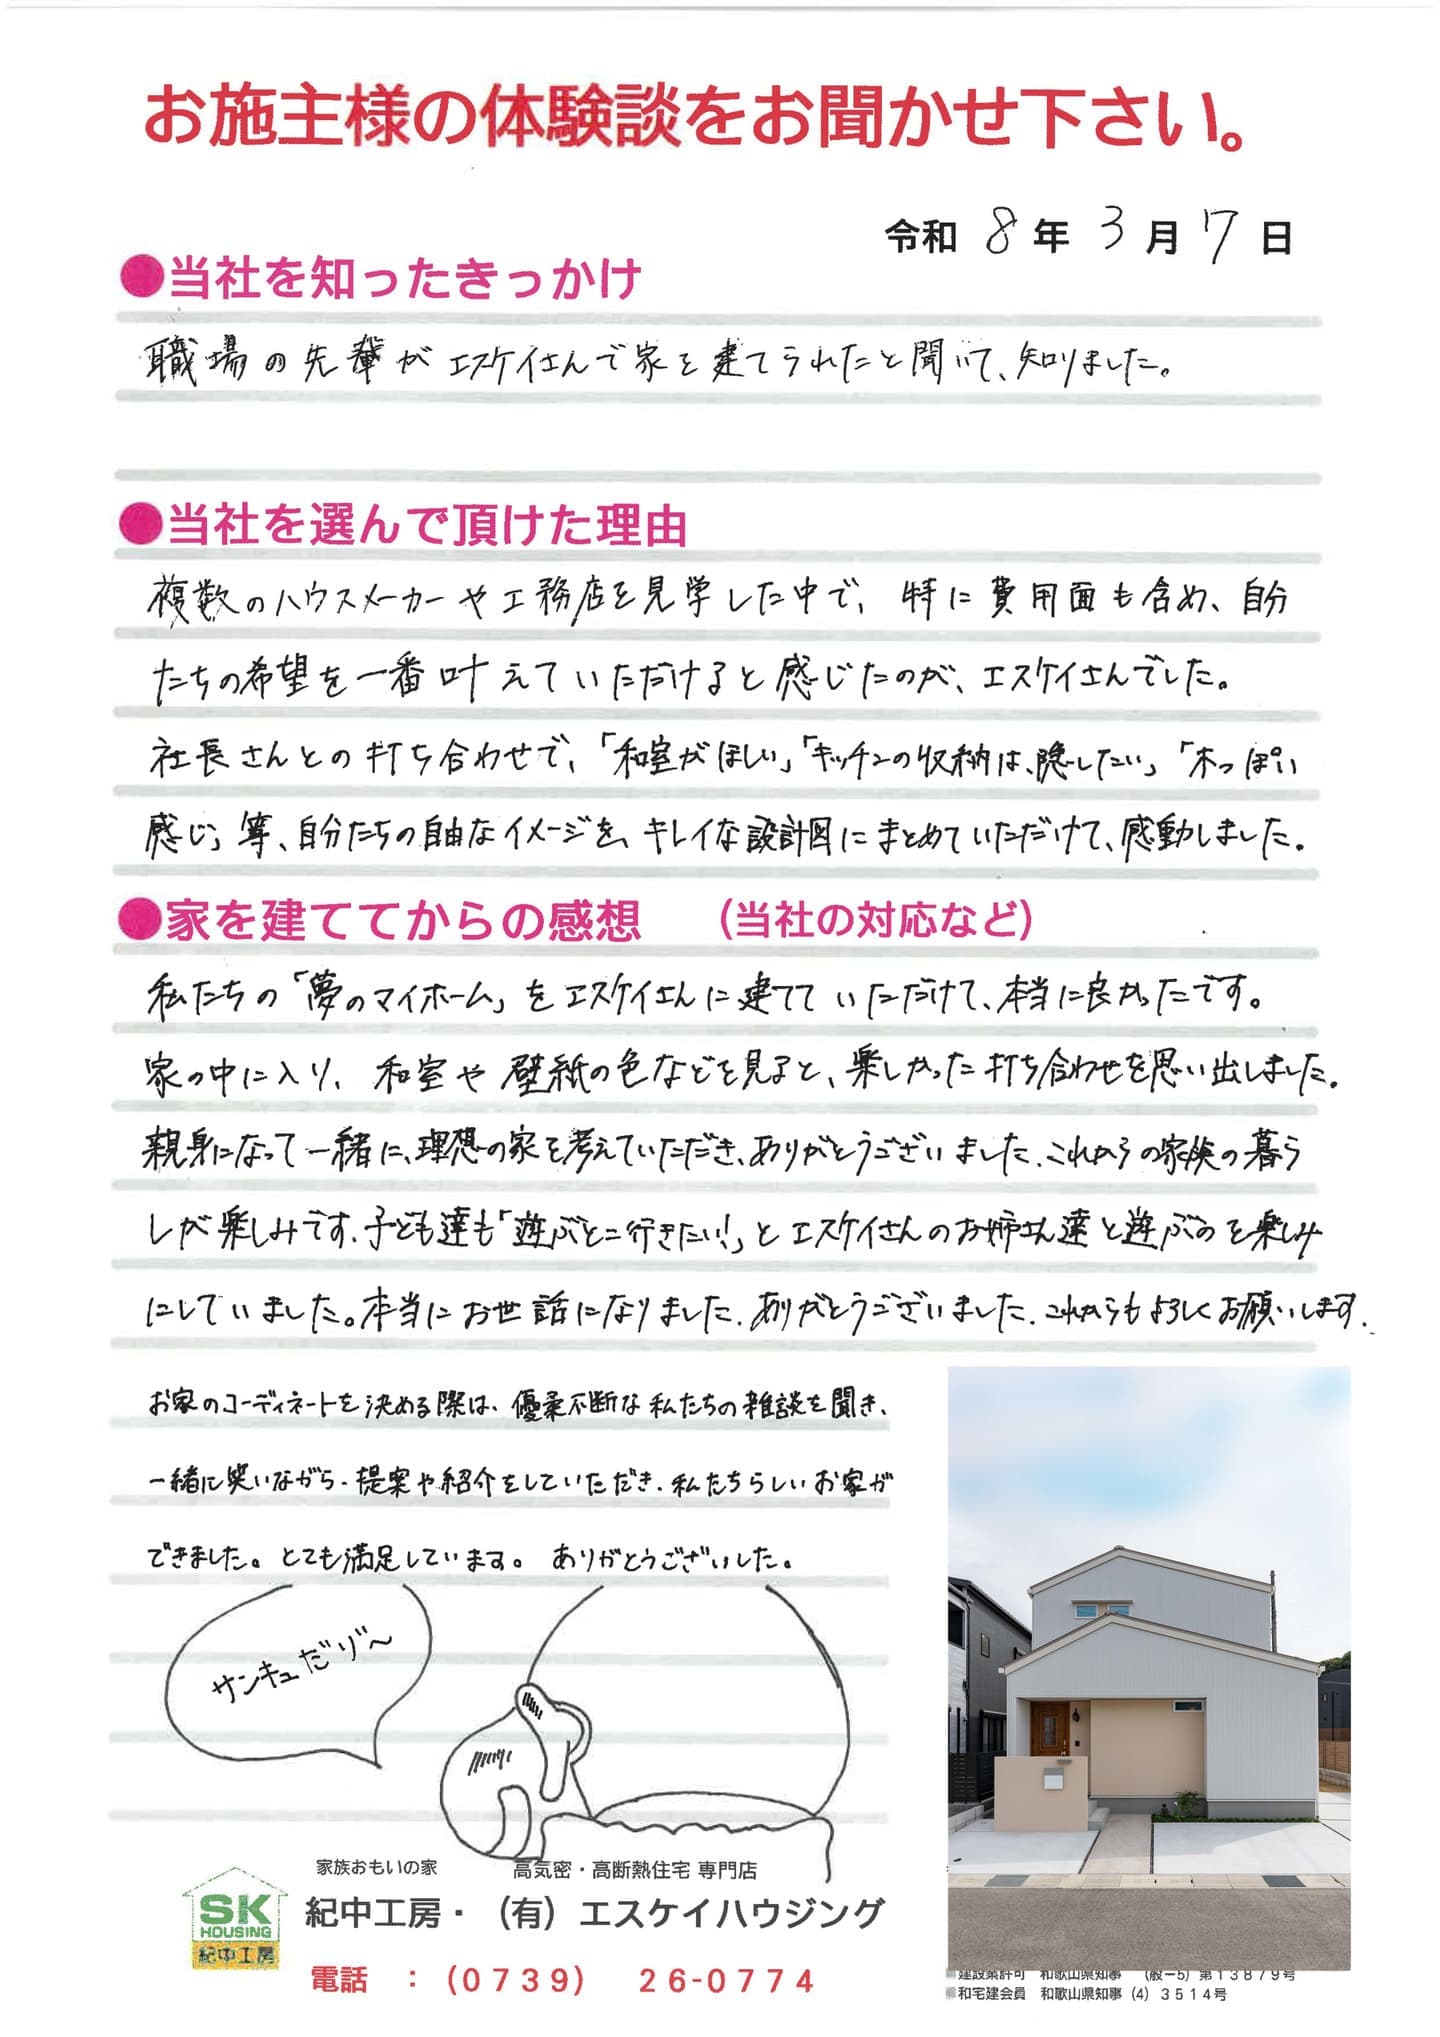 お施主様の体験談をお聞かせ下さい。
令和 8 年 3 月 7 日
●当社を知ったきっかけ
職場の先輩がエスケイさんで家を建てられたと聞いて、知りました。
●当社を選んで頂けた理由
複数のハウスメーカーや工務店を見学した中で、特に費用面も含め、自分
たちの希望を一番叶えていただけると感じたのが、エスケイさんでした。
社長さんとの打ち合わせで、「和室がほしい」「キッチンの収納は、隠したい」「木っぽい
感じ」等、自分たちの自由なイメージを、キレイな設計図にまとめていただけて、感動しました。
●家を建ててからの感想 (当社の対応など)
私たちの「夢のマイホーム」をエスケイさんに建てていただけて、本当に良かったです。
家の中に入り、和室や壁紙の色などを見ると、楽しかった打ち合わせを思い出しました。
親身になって一緒に、理想の家を考えていただき、ありがとうございました。これからの家族の暮ら
しが楽しみです。子ども達も「遊ぶとこ行きたい!」とエスケイさんのお姉さん達と遊ぶのを楽しみ
にしていました。本当にお世話になりました。ありがとうございました。これからもよろしくお願いします。
お家のコーディネートを決める際は、優柔不断な私たちの雑談を聞き、
一緒に笑いながら、提案や紹介をしていただき、私たちらしいお家が
できました。とても満足しています。ありがとうございした。
サンキュだゾ〜
家族おもいの家 高気密・高断熱住宅 専門店
SK
HOUSING
紀中工房
紀中工房・(有)エスケイハウジング
電話 :(0739) 26-0774
建設業許可 和歌山県知事 (般ー5)第13879号
和宅建会員 和歌山県知事(4)3514号